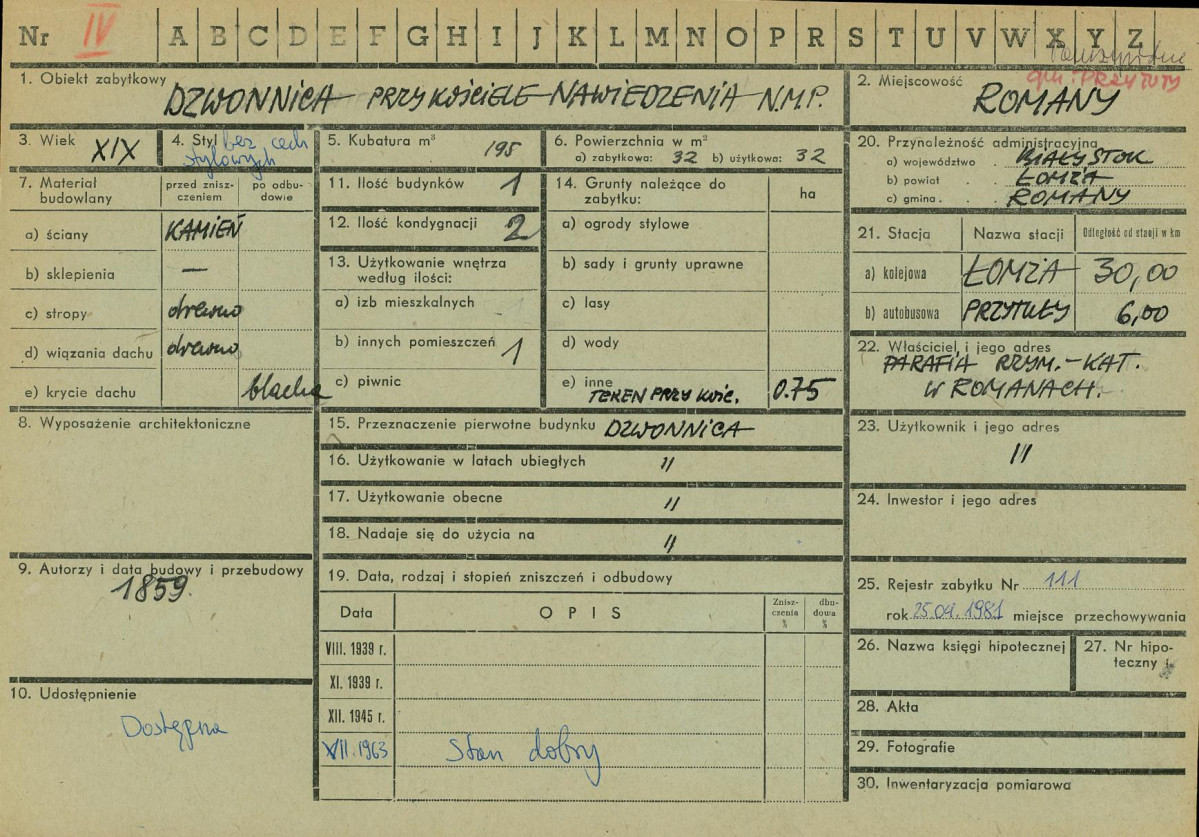 Nr IV A B C D E F G H I J K L M N O P R S T U V W X Y Z
gm. PRZYTUŁY
1. Obiekt zabytkowy
DZWONNICA PRZY KOŚCIELE NAWIEDZENIA N.M.P.
2. Miejscowość
ROMANY
3. Wiek
XIX
4. Styl bez cech
stylowych
5. Kubatura m³
195
6. Powierzchnia w m²
a) zabytkowa: 32 b) użytkowa: 32
7. Materiał budowlany
przed zniszczeniem
po odbudowie
a) ściany KAMIEŃ
b) sklepienia —
c) stropy drewno
d) wiązania dachu drewno
e) krycie dachu blacha
8. Wyposażenie architektoniczne
9. Autorzy i data budowy i przebudowy
1859.
10. Udostępnienie
Dostępna
11. Ilość budynków 1
12. Ilość kondygnacji 2
13. Użytkowanie wnętrza
według ilości:
a) izb mieszkalnych
b) innych pomieszczeń 1
c) piwnic
14. Grunty należące do
zabytku:
ha
a) ogrody stylowe
b) sady i grunty uprawne
c) lasy
d) wody
e) inne
TEREN PRZY KOŚC. 0.75
15. Przeznaczenie pierwotne budynku DZWONNICA
16. Użytkowanie w latach ubiegłych "
17. Użytkowanie obecne "
18. Nadaje się do użycia na "
19. Data, rodzaj i stopień zniszczeń i odbudowy
Data OPIS Zniszczenia % dbudowa %
VIII. 1939 r.
XI. 1939 r.
XII. 1945 r.
VII. 1963 Stan dobry
20. Przynależność administracyjna
a) województwo BIAŁYSTOK
b) powiat ŁOMŻA
c) gmina ROMANY
21. Stacja Nazwa stacji Odległość od stacji w km
a) kolejowa ŁOMŻA 30,00
b) autobusowa PRZYTUŁY 6,00
22. Właściciel i jego adres
PARAFIA RZYM.-KAT.
W ROMANACH.
23. Użytkownik i jego adres
"
24. Inwestor i jego adres
25. Rejestr zabytku Nr 111
rok 25.09.1981 miejsce przechowywania
26. Nazwa księgi hipotecznej
27. Nr hipoteczny
28. Akta
29. Fotografie
30. Inwentaryzacja pomiarowa